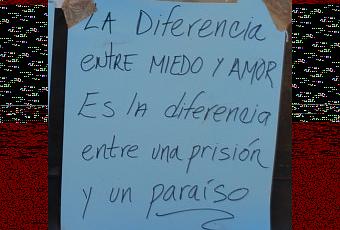 LA Diferencia
entre MIEDO Y AMOR
Es lA diferencia
entre una prisión
y un paraíso